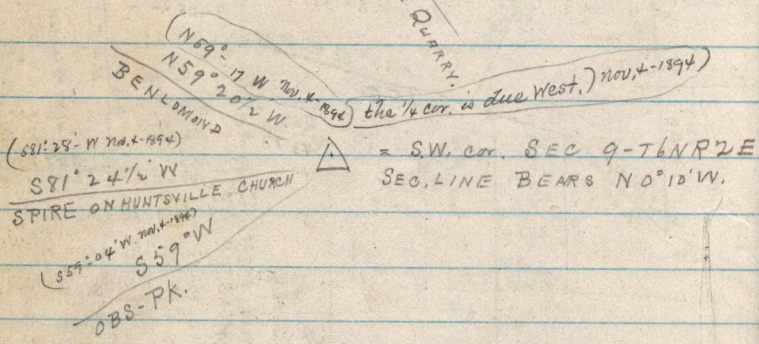 QUARRY.
(N59°-17 W Nov. 4-1894)
N59° 20½ W
BENLOMOND
the ¼ cor. is due West.) Nov, 4-1894)
(S81°-28'-W Nov, 4-1894)
S81° 24½' W
SPIRE ON HUNTSVILLE CHURCH
= S.W. cor. SEC 9-T6NR2E
SEC. LINE BEARS N0°10'W.
(S59°-04' W. Nov. 4-1894)
S59° W
OBS-PK.